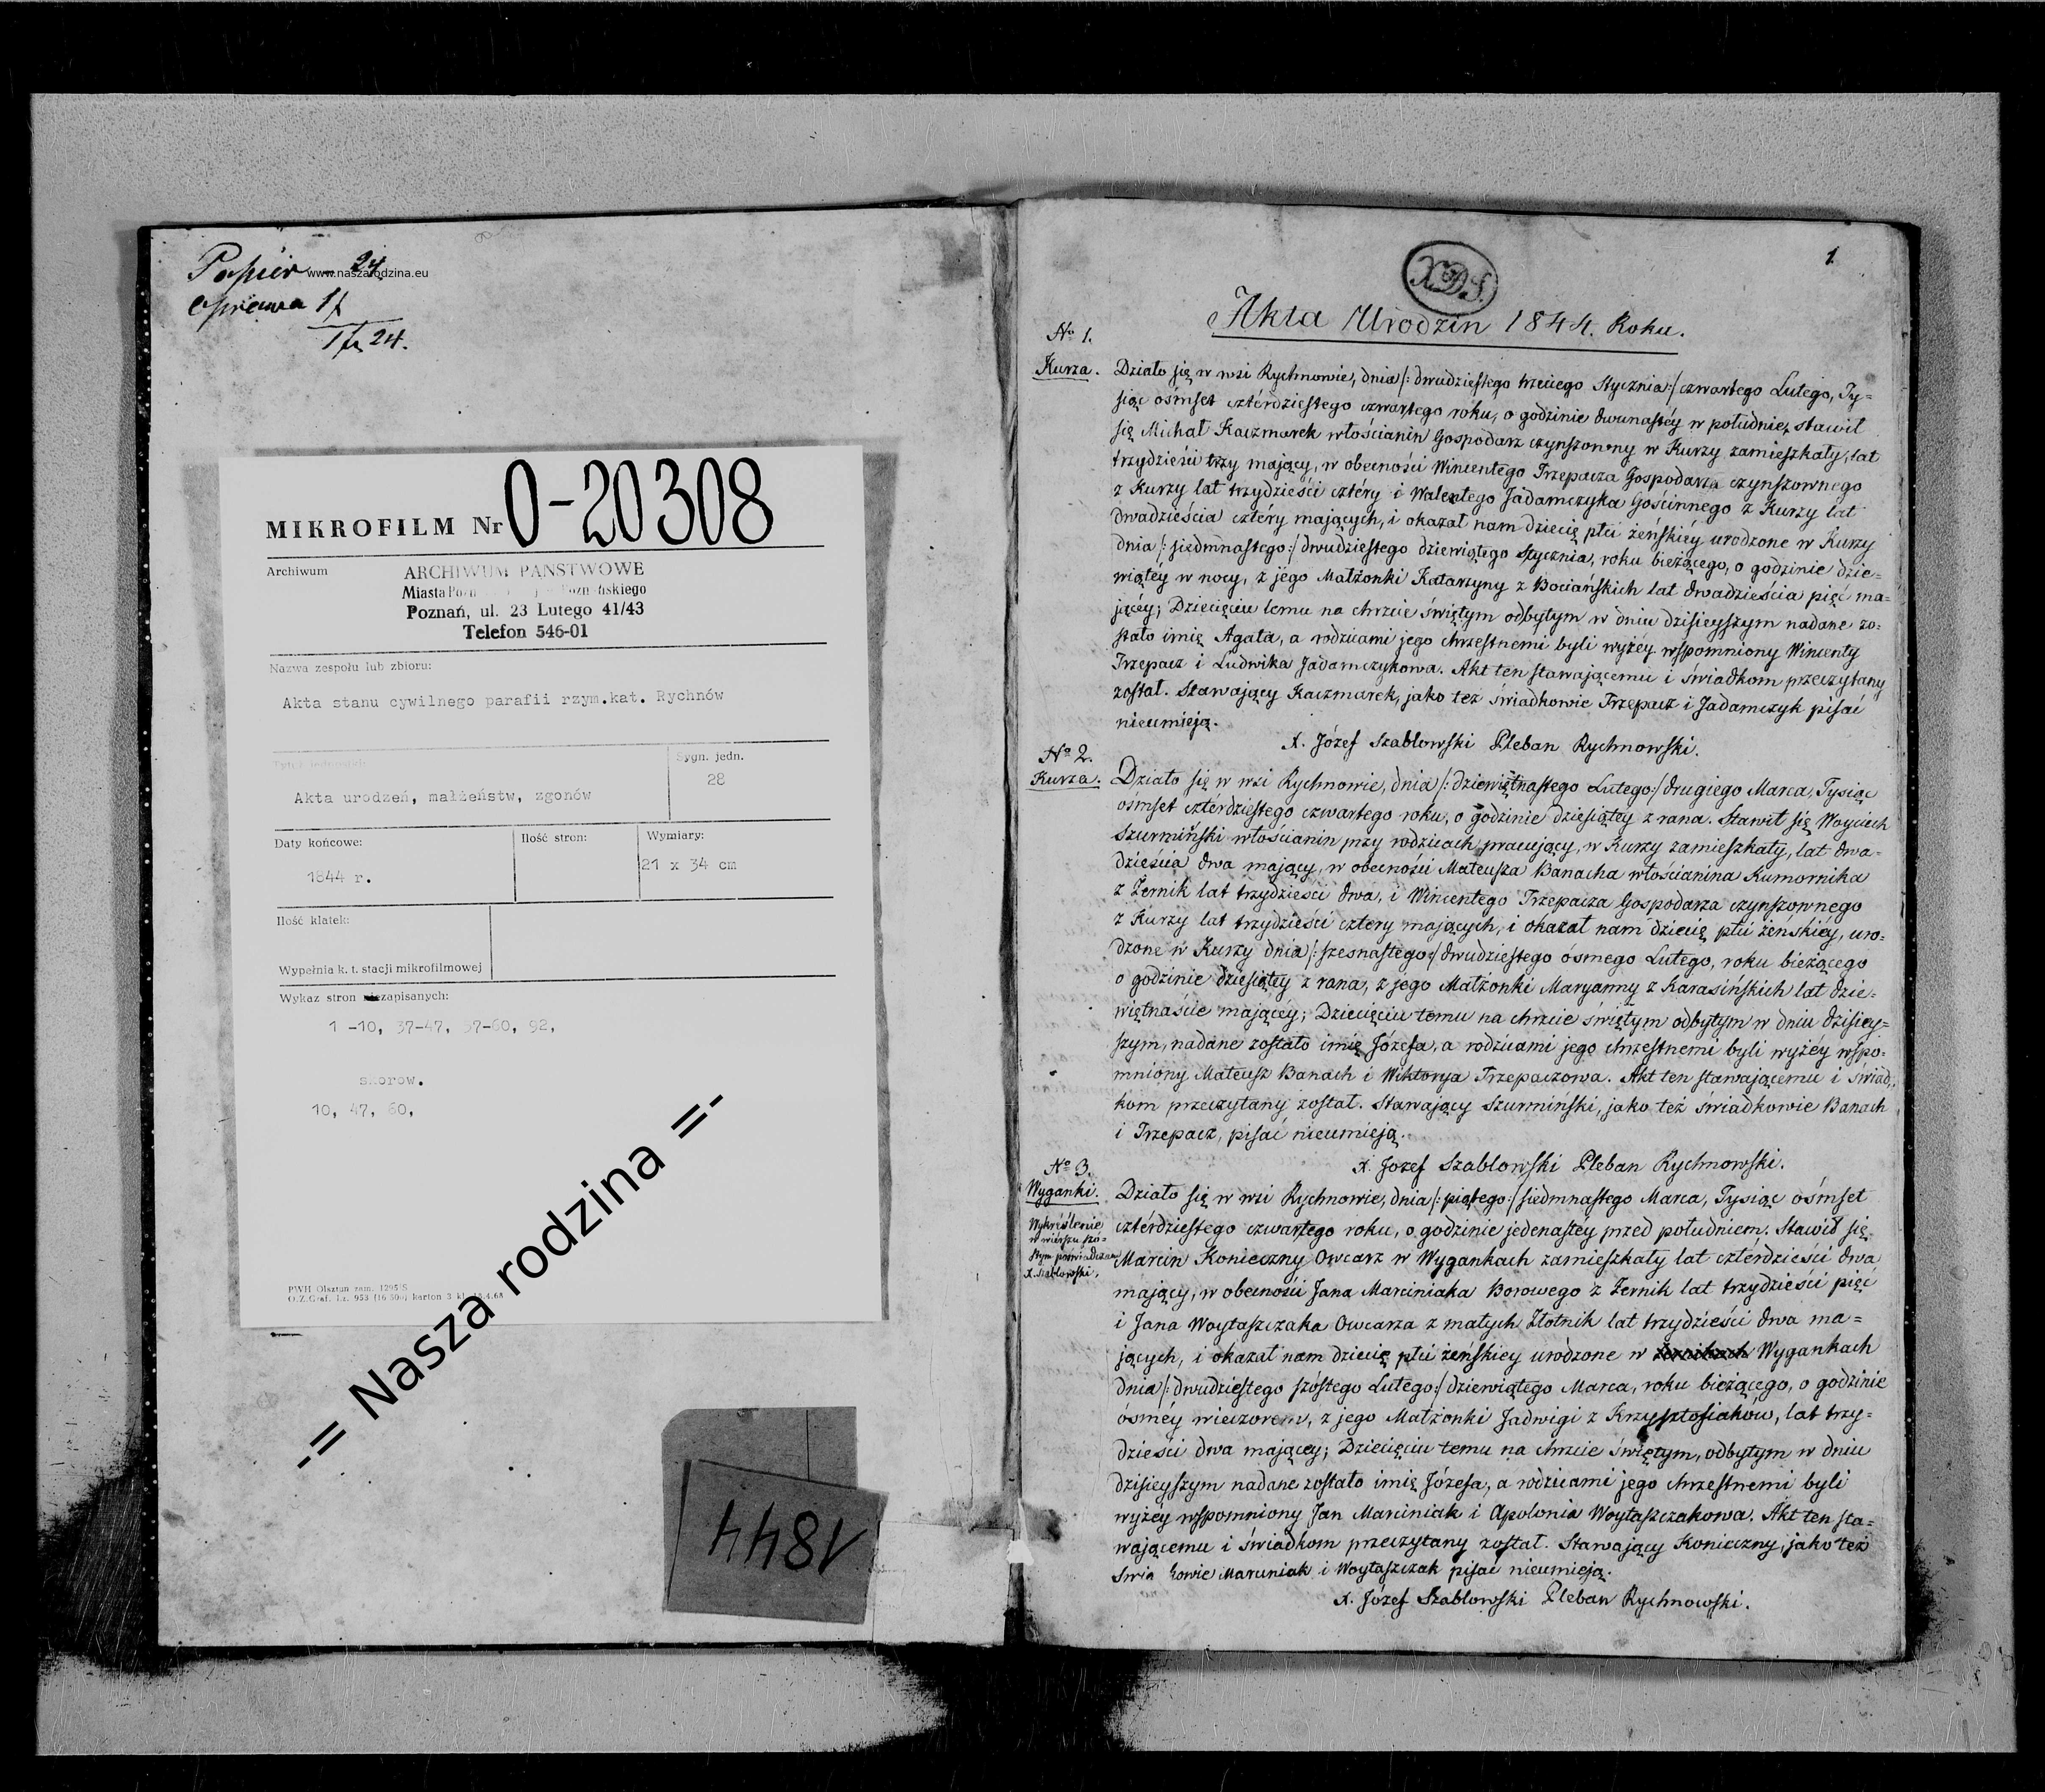 Papier 24
www.naszarodzina.eu
oprawa 1
24.
MIKROFILM Nr 0-20308
Archiwum
ARCHIWUM PAŃSTWOWE
Miasta
Poznań, ul. 23 Lutego 41/43
Telefon 546-01
Nazwa zespołu lub zbioru:
Akta stanu cywilnego parafii rzym.kat. Rychnów
Sygn. jedn.
28
Akta urodzeń, małżeństw, zgonów
Daty końcowe:
1844 r.
Ilość stron:
Wymiary:
21 x 34 cm
Ilość klatek:
Wypełnia k. t. stacji mikrofilmowej
Wykaz stron niezapisanych:
1 -10, 37-47, 57-60, 92,
skorow.
10, 47, 60,
PWH Olsztyn zam. 1295/S
-= Nasza rodzina =-
1844
1
XDS.
Akta Urodzin 1844. Roku.
No 1.
Kurza.
Działo się w wsi Rychnowie, dnia /: dwudziestego trzeciego Stycznia :/ czwartego Lutego, Ty=
siąc ośmset cztérdziestego czwartego roku, o godzinie dwunastéy w południe, stawił
się Michał Kaczmarek włościanin Gospodarz czynszowny w Kurzy zamieszkały, lat
trzydzieści trzy mający, w obecności Wincentego Trzepacza Gospodarza czynszownego
z Kurzy lat trzydzieści cztéry i Walentego Jadamczyka Gościnnego z Kurzy lat
dwadzieścia cztéry mających, i okazał nam dziecię płci żeńskiéy urodzone w Kurzy
dnia /: siedmnastego :/ dwudziestego dziewiątego Stycznia, roku bieżącego, o godzinie dzie=
wiątéy w nocy, z jego Małżonki Katarzyny z Bociańskich lat dwadzieścia pięć ma=
jącéy; Dziecięciu temu na chrzcie świętym odbytym w dniu dzisieyszym nadane zo=
stało imię Agata, a rodzicami jego chrzestnemi byli wyżéy wspomniony Wincenty
Trzepacz i Ludwika Jadamczykowa. Akt ten stawającemu i świadkom przeczytany
został. Stawający Kaczmarek, jako też świadkowie Trzepacz i Jadamczyk pisać
nieumieją.
X. Józef Szabłowski Pleban Rychnowski.
No 2.
Kurza.
Działo się w wsi Rychnowie, dnia /: dziewiętnastego Lutego :/ drugiego Marca, Tysiąc
ośmset cztérdziestego czwartego roku, o godzinie dziesiątey z rana. Stawił się Woyciech
Szurmiński włościanin przy rodzicach pracujący, w Kurzy zamieszkały, lat dwa=
dzieścia dwa mający, w obecności Mateusza Banacha włościanina Kumornika
z Żernik lat trzydzieści dwa, i Wincentego Trzepacza Gospodarza czynszownego
z Kurzy lat trzydzieści cztery mających, i okazał nam dziecię płci żeńskiéy, uro=
dzone w Kurzy dnia /: szesnastego :/ dwudziestego ósmego Lutego, roku bieżącego
o godzinie dziesiątey z rana, z jego Małżonki Maryanny z Karasińskich lat dzie=
więtnaście mającéy; Dziecięciu temu na chrzcie świętym odbytym w dniu dzisiey=
szym, nadane zostało imię Józefa, a rodzicami jego chrzestnemi byli wyżéy wspo=
mniony Mateusz Banach i Wiktorya Trzepaczowa. Akt ten stawającemu i świad=
kom przeczytany został. Stawający Szurmiński, jako też świadkowie Banach
i Trzepacz, pisać nieumieją.
X. Jozef Szabłowski Pleban Rychnowski.
No 3.
Wyganki.
Wykréslenie
w wiérszu szó=
stym poświadczam
X. Szabłowski.
Działo się w wsi Rychnowie, dnia /: piątego :/ siedmnastego Marca, Tysiąc ośmset
cztérdziestego czwartego roku, o godzinie jedenastéy przed południem. Stawił się
Marcin Konieczny Owcarz w Wygankach zamieszkały lat czterdzieści dwa
mający, w obecności Jana Marciniaka Borowego z Żernik lat trzydzieści pięć
i Jana Woytaszczaka Owcarza z małych Złotnik lat trzydzieści dwa ma=
jących, i okazał nam dziecię płci żeńskiey urodzone w Wygankach
dnia /: dwudziestego szóstego Lutego :/ dziewiątego Marca, roku bieżącego, o godzinie
ósméy wieczorem, z jego Małżonki Jadwigi z Krzysztosiaków, lat trzy=
dzieści dwa mającey; Dziecięciu temu na chrzcie świętym, odbytym w dniu
dzisieyszym nadane zostało imię Józefa, a rodzicami jego chrzestnemi byli
wyżey wspomniony Jan Marciniak i Apolonia Woytaszczakowa. Akt ten sta=
wającemu i świadkom przeczytany został. Stawający Konieczny, jako też
Swia kowie Marciniak i Woytaszczak pisać nieumieją.
X. Józef Szabłowski Pleban Rychnowski.